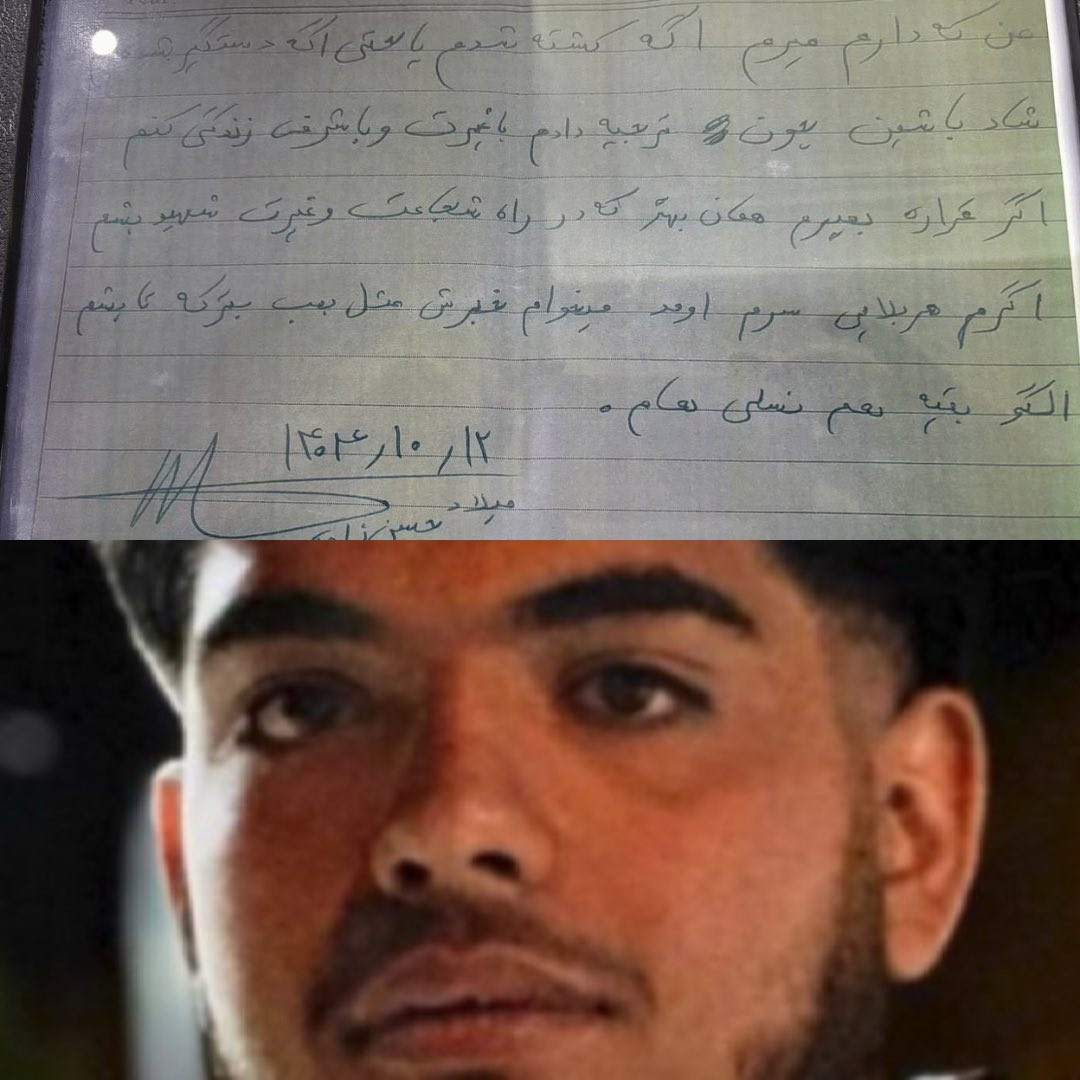 من که دارم میرم اگه کشته شدم یا حتی اگه دستگیر شدم
شاد باشین چون ترجیح دادم باغیرت و باشرف زندگی کنم
اگر قراره بمیرم همان بهتر که در راه شجاعت و غیرت شهید بشم
اگرم هر بلایی سرم اومد میخوام خبرش مثل بمب بترکه تا بشم
الگو بقیه هم نسلی هام .
۱۴۰۴٫۱۰٫۱۲
میلاد حسن زاده